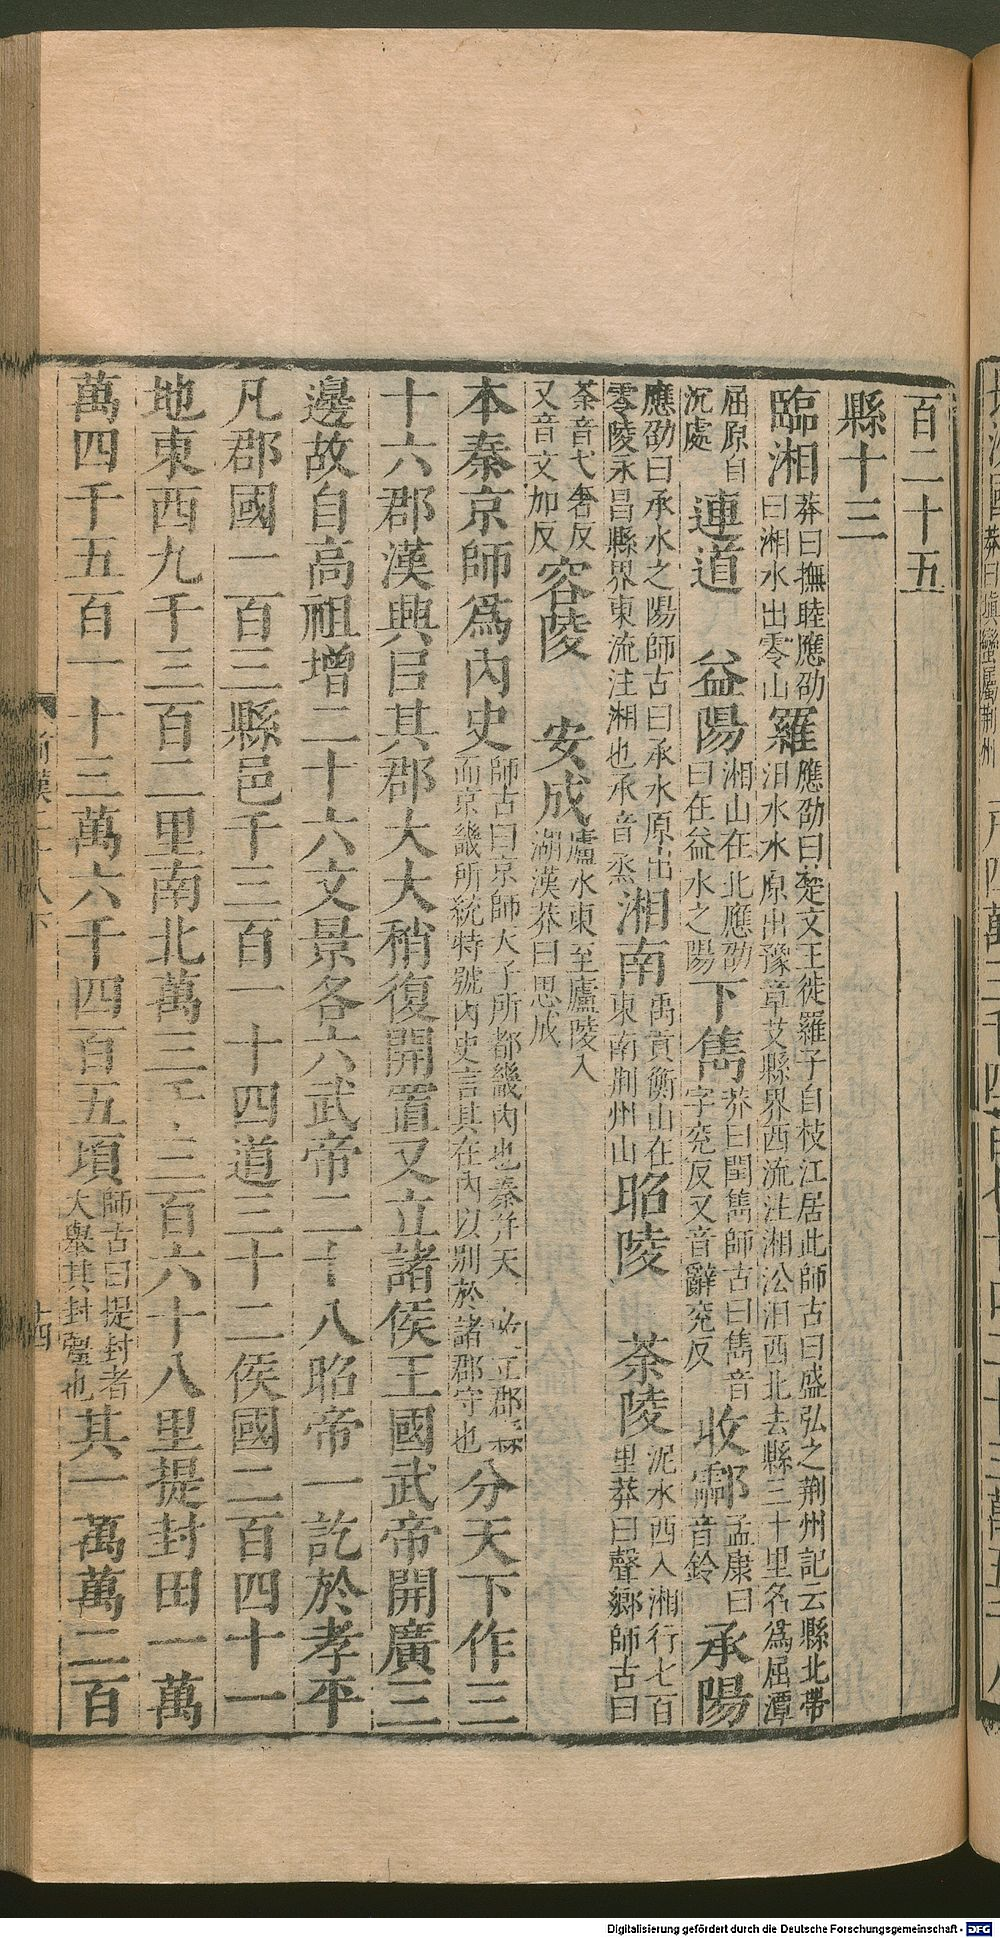 百二十五
縣十三
臨湘莽曰撫睦應劭曰湘水出零山羅應劭曰楚文王徙羅子自枝江居此師古曰盛弘之荆州記云縣北帶汨水水原出豫章艾縣界西流注湘㳂汨西北去縣三十里名爲屈潭
屈原自沉處連道 益陽湘山在北應劭曰在益水之陽下雋莽曰閏雋師古曰雋音字兖反又音辭兖反收酃孟康曰音鈴承陽
應劭曰承水之陽師古曰承水原出零陵永昌縣界東流注湘也承音烝湘南禹貢衡山在東南荆州山昭陵 茶陵泥水西入湘行七百里莽曰聲鄉師古曰
茶音弋奢反又音丈加反容陵 安成廬水東至廬陵入湖漢莽曰思成
本秦京師爲內史師古曰京師天子所都畿內也秦幷天立郡而京畿所統特號內史言其在內以别於諸郡守也分天下作三
十六郡漢興㠯其郡大大稍復開置又立諸侯王國武帝開廣三
邊故自高祖增二十六文景各六武帝二十八昭帝一訖於孝平
凡郡國一百三縣邑千三百一十四道三十二侯國二百四十一
地東西九千三百二里南北萬三千三百六十八里提封田一萬
萬四千五百一十三萬六千四百五頃師古曰提封者大舉其封疆也其一萬萬二百
十四
Digitalisierung gefördert durch die Deutsche Forschungsgemeinschaft - DFG